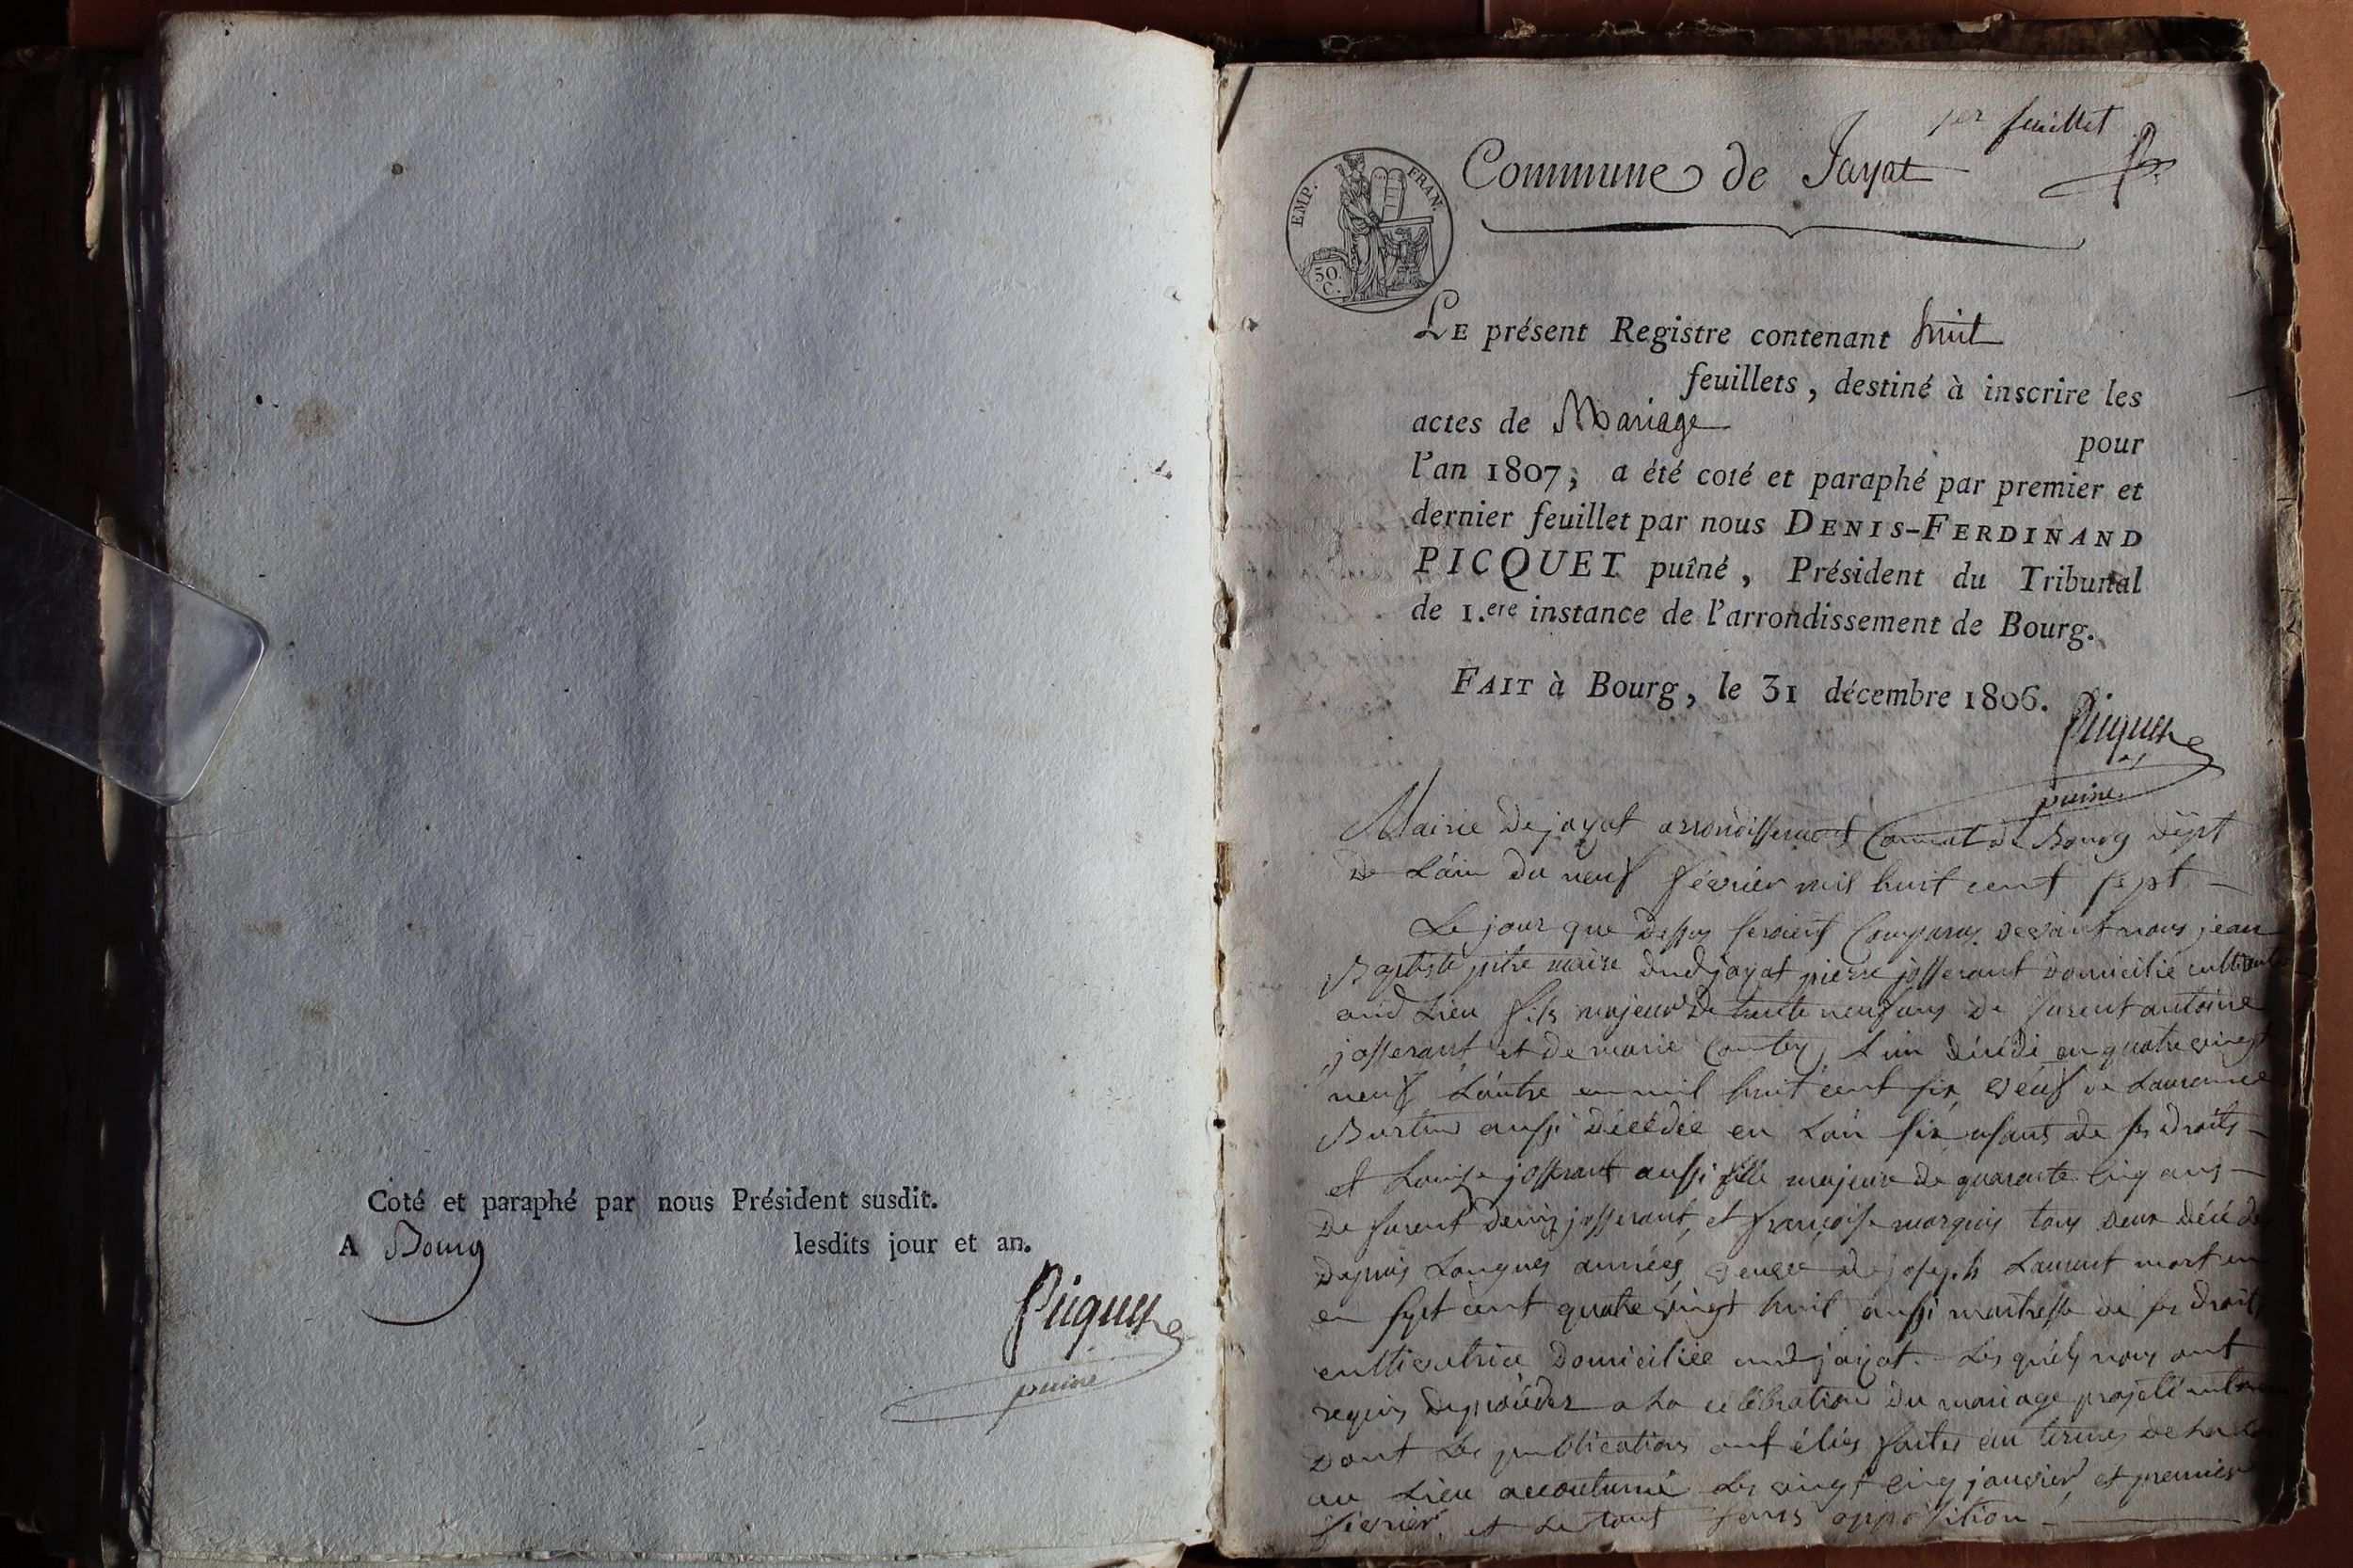 Coté et paraphé par nous Président susdit.
A Bourg lesdits jour et an.
Picquet
puiné
1er feuillet
Commune de Jayat
EMP. FRAN.
50.
C.
LE présent Registre contenant huit
feuillets, destiné à inscrire les
actes de Mariage
pour
l'an 1807, a été coté et paraphé par premier et
dernier feuillet par nous DENIS-FERDINAND
PICQUET puîné, Président du Tribunal
de 1.ere instance de l'arrondissement de Bourg.
FAIT à Bourg, le 31 décembre 1806.
Picquet
puiné
Mairie De jayat arrondissement Communal de Bourg Dépt
De L'ain du neuf février mil huit cent sept
Le jour que Dessus seroient Comparus Devant nous jean
Baptiste pitre maire dud jayat pierre josserant Domicilié
aud Lieu fils majeur De trente neuf ans De furent antoine
josserant et De marie L'un Décédé en quatre vingt
neuf L'autre en mil huit cent six, veuf de Laurence
Burtin aussi Décédée en L'an six usant De ses Droits
et Louise josserant aussi fille majeure De quarante cinq ans
De furent Denis josserant, et françoise marquis tous Deux
Depuis Longues années, veuve De joseph Laurent mort en
en sept cent quatre vingt huit aussi maitresse de ses droits
cultivatrice Domiciliée aud jayat. Les quels nous ont
requis De procéder a La célébration Du mariage projeté
Dont Les publications ont étées faites au termes De La
au Lieu accoutumé Les vingt cinq janvier et premier
février, et Le tout sans opposition